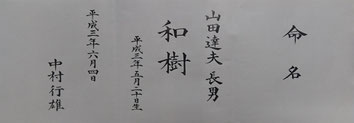 命名
山田達夫 長男
和樹
平成三年五月二十日生
平成三年六月四日
中村行雄